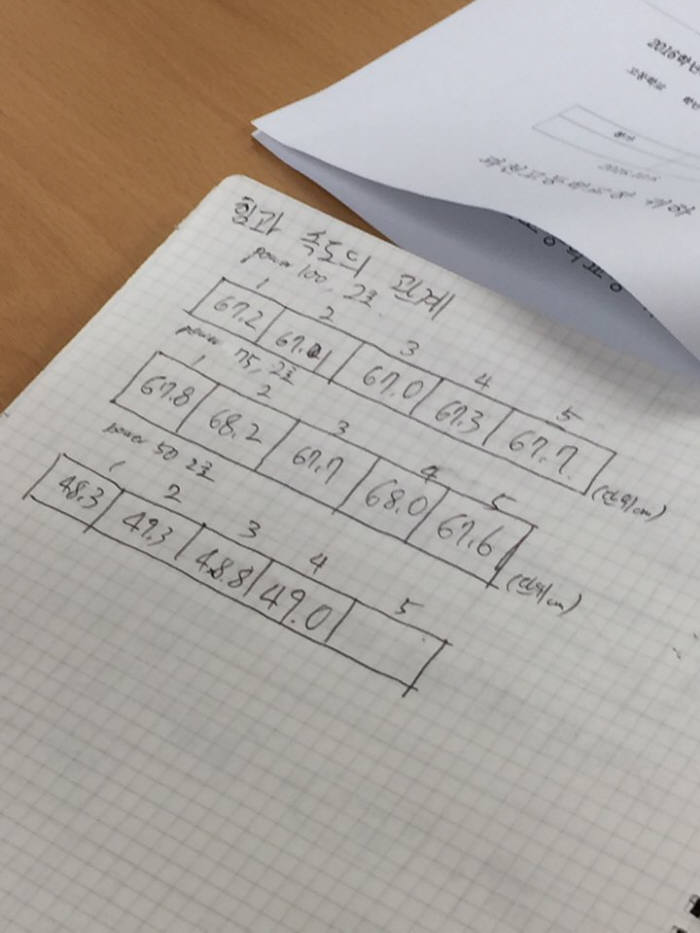 2016학
고등학교
과천고등학교장 귀하
힘과 속도의 관계
power 100, 2초
1 2 3 4 5
67.2 67.1 67.0 67.3 67.7
(단위cm)
power 75, 2초
1 2 3 4 5
67.8 68.2 67.7 68.0 67.6
(단위cm)
power 50 2초
1 2 3 4 5
48.3 49.3 48.8 49.0